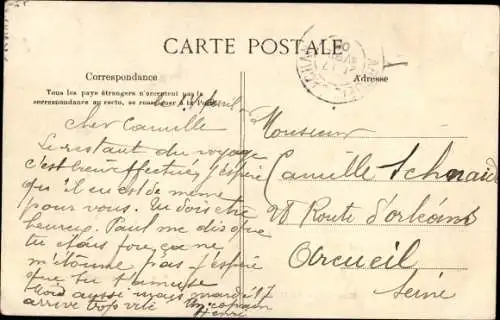 CARTE POSTALE
Correspondance
Tous les pays étrangers n'acceptent pas la
correspondance au recto, se renseigner à la Poste
Adresse
Cher Camille
Le restant du voyage
c'est bien effectué, j'espère
qu'il en est de même
pour vous. Tu dois être
heureux. Paul me dis que
tu étais ça ne
m'étonne pas j'espère
que tu t'amuse
toi aussi mais mardi 17
arrive trop vite Un copain
Henri
Monsieur
Camille
28 Route d'orléans
Arcueil
Seine